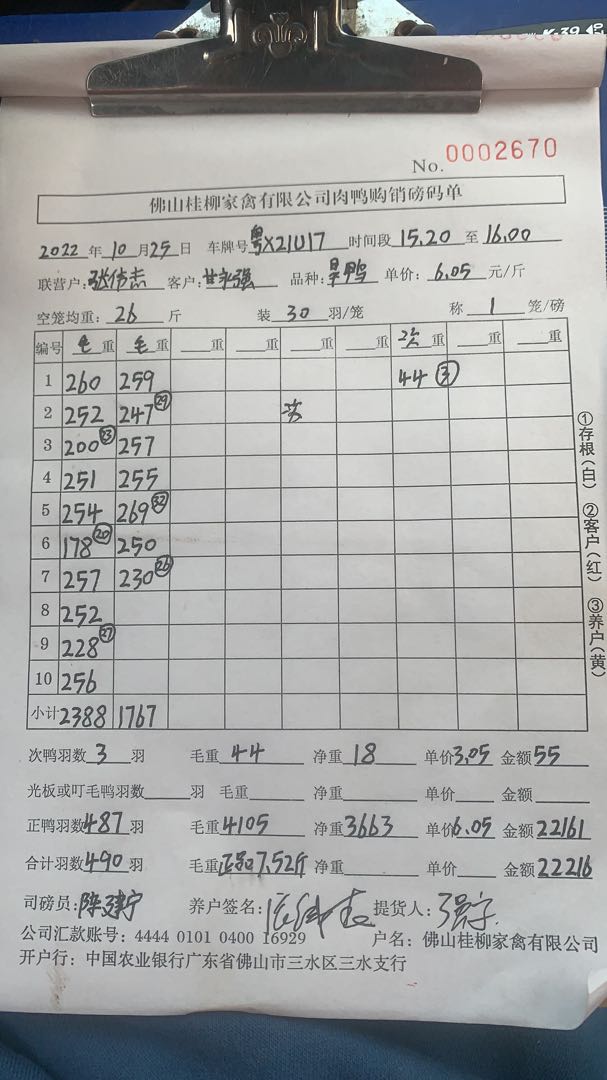 No. 0002670
佛山桂柳家禽有限公司肉鸭购销磅码单
2022 年 10 月 25 日 车牌号 粤X21U17 时间段 15.20 至 16.00
联营户: 张伟志 客户: 甘永强 品种: 旱鸭 单价: 6.05 元/斤
空笼均重: 26 斤 装 30 羽/笼 称 1 笼/磅
编号 毛 重 毛 重 重 重 重 重 次 重 重 重
1 260 259 44 ③
2 252 247 ㉙
3 200 ㉓ 257
4 251 255
5 254 269 ㉜
6 178 ⑳ 250
7 257 230 ㉖
8 252
9 228 ㉗
10 256
小计 2388 1767
①存根(白) ②客户(红) ③养户(黄)
次鸭羽数 3 羽 毛重 44 净重 18 单价 3.05 金额 55
光板或叮毛鸭羽数 羽 毛重 净重 单价 金额
正鸭羽数 487 羽 毛重 4105 净重 3663 单价 6.05 金额 22161
合计羽数 490 羽 毛重 正品7.52斤 净重 单价 金额 22216
司磅员: 养户签名: 提货人:
公司汇款账号: 4444 0101 0400 16929 户名: 佛山桂柳家禽有限公司
开户行: 中国农业银行广东省佛山市三水区三水支行